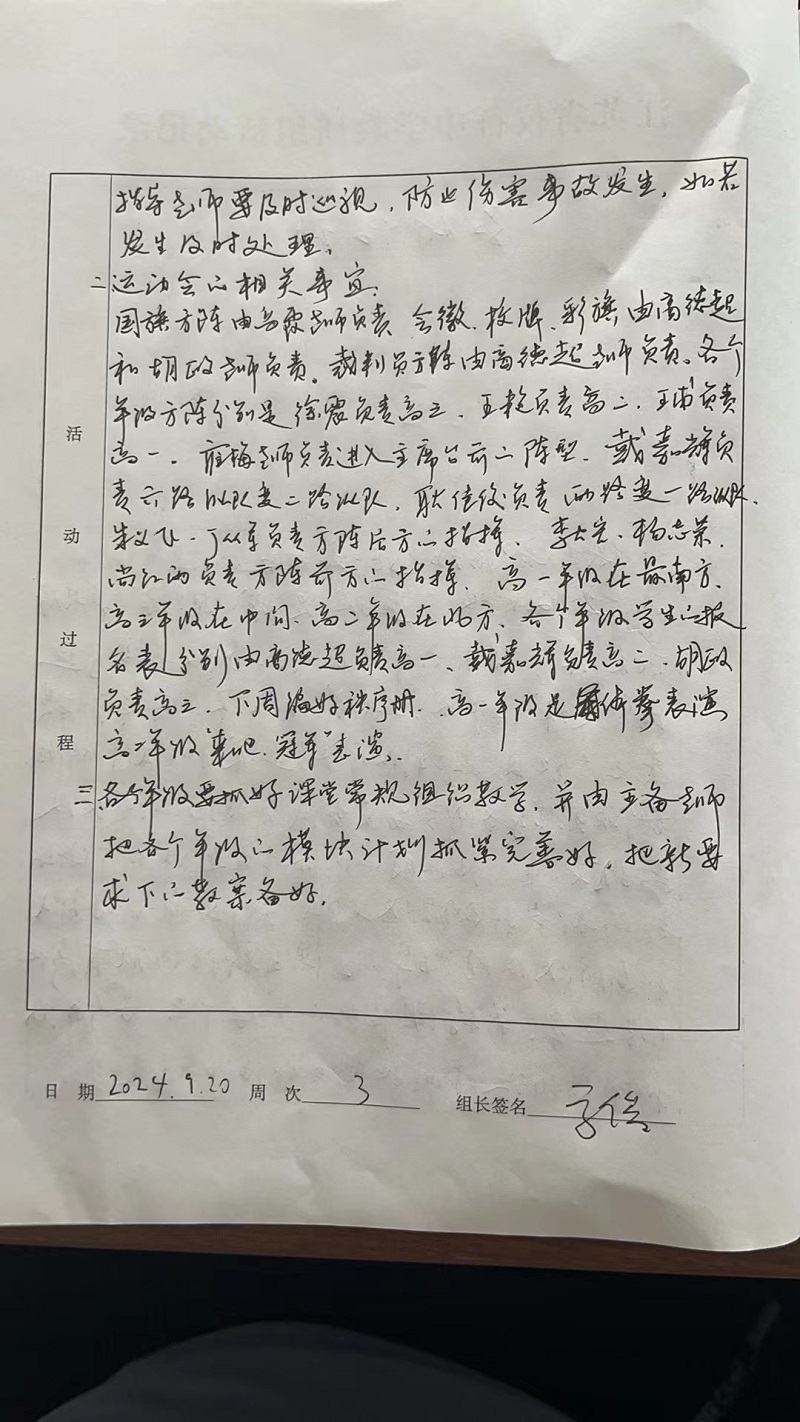 指导老师要及时巡视，防止伤害事故发生，如若
发生及时处理。
二 运动会的相关事宜：
国旗方阵由 老师负责 会徽、校牌、彩旗由高德超
和胡政老师负责。裁判员方阵由高德超老师负责。各个
年级方阵分别是徐震负责高三、王艳负责高二、王 负责
高一。 梅老师负责进入主席台前的阵型、戴嘉辉负
责六路纵队变二路纵队，耿佳俊负责两路变一路纵队、
朱义飞、丁从军负责方阵后方的指挥、李大光、杨志荣、
尚红雨负责方阵前方的指挥、高一年级在最南方、
高三年级在中间、高二年级在北方、各个年级学生的报
名表分别由高德超负责高一、戴嘉辉负责高二、胡政
负责高三、下周编好秩序册、高一年级是 拳表演
高二年级“来吧、冠军”表演。
三 各个年级要抓好课堂常规组织教学，并由主备老师
把各个年级的模块计划抓紧完善好，把新要
求下的教案备好。
活
动
过
程
日 期 2024.9.20 周 次 3 组长签名